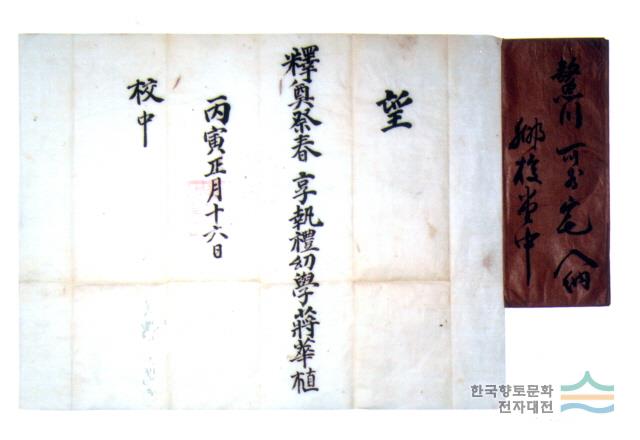 鰲川 宅 入納
鄕校堂中
望
釋奠祭春 享執禮幼學蔣華植
丙寅正月十六日
校中
한국향토문화
전자대전